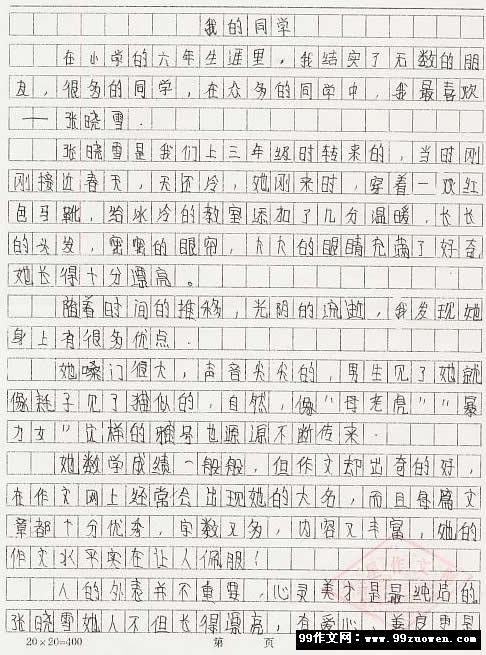 我的同学
在小学的六年生涯里，我结实了无数的朋
友，很多的同学，在众多的同学中，我最喜欢
——张晓雪．
张晓雪是我们上三年级时转来的，当时刚
刚接近春天，天还冷，她刚来时，穿着一双红
色马靴，给冰冷的教室添加了几分温暖，长长
的头发，密密的眼帘，大大的眼睛充满了好奇
她长得十分漂亮。
随着时间的推移，光阴的流逝，我发现她
身上有很多优点．
她嗓门很大，声音尖尖的，男生见了她就
像耗子见了猫似的，自然，像“母老虎”“暴
力女”这样的雅号也源源不断传来．
她数学成绩一般般，但作文却出奇的好，
在作文网上经常会出现她的大名，而且每篇文
章都十分优秀，字数又多，内容又丰富，她的
作文水平实在让人佩服！
人的外表并不重要，心灵美才是最纯洁的
张晓雪她人不但长得漂亮，有爱心，善良更是
20×20=400 第 页
99作文网：www.99zuowen.com